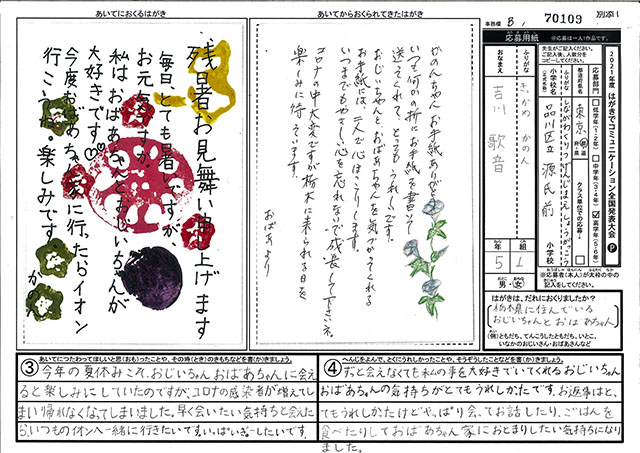 あいてにおくるはがき
残暑お見舞い申し上げます
毎日、とても暑いですが、
お元気ですか。
私はおばあちゃんとおじいちゃんが
大好きです♡
今度おばあちゃん家に行ったらイオン
行こうね。楽しみです。
かのん
あいてからおくられてきたはがき
かのんちゃんお手紙ありがとう
いつも何かの折にお手紙を書いて
送ってくれて、とてもうれしいです。
おじいちゃんとおばあちゃんを気づかってくれる
お手紙には、二人で心ほっこりします。
いつまでもやさしい心を忘れないで成長して下さいネ。
コロナの中大変ですが栃木に来られる日を
楽しみに待っています。
おばあより
事務欄 B1 70109 別添1
応募用紙
※応募は一人1作品です。
2021年度 はがきでコミュニケーション全国発表大会
先生がご記入ください。
ご記入後、人数分を
コピーしてください。
応募部門
低学年(1・2年)
中学年(3・4年)
高学年(5・6年)
都道府県名
東京 都
クラス単位での応募
ふりがな
しながわくりつ げんじまえ しょうがっこう
小学校名
(正式名称)
品川区立 源氏前
小学校
※応募者(本人)が太枠の中の
記入をしてください。
ふりがな
きっかわ かのん
おなまえ
吉川 歌音
年 組
5 1
男・女
はがきは、だれにおくりましたか?
栃木県に住んでいる
おじいちゃんとおばあちゃん
(例)ともだち、てんこうしたともだち、いとこ、
いなかのおじいさん・おばあさんなど
③ あいてにつたわってほしいと思(おも)ったことや、その時(とき)のきもちなどを書(か)きましょう。
今年の夏休みこそ、おじいちゃんおばあちゃんに会え
ると楽しみにしていたのですが、コロナの感染者が増えてし
まい帰れなくなってしまいました。早く会いたい気持ちと会えた
ら、いつものイオンへ一緒に行きたいです。いっぱいぎゅーしたいです。
④ へんじをよんで、とくにうれしかったことや、そうぞうしたことなどを書(か)きましょう。
ずっと会えなくても私の事を大好きでいてくれるおじいちゃん
おばあちゃんの気持ちがとてもうれしかったです。お返事はと
てもうれしかったけどや、ぱり会ってお話したり、ごはんを
食べたりしておばあちゃん家におとまりしたい気持ちになり
ました。